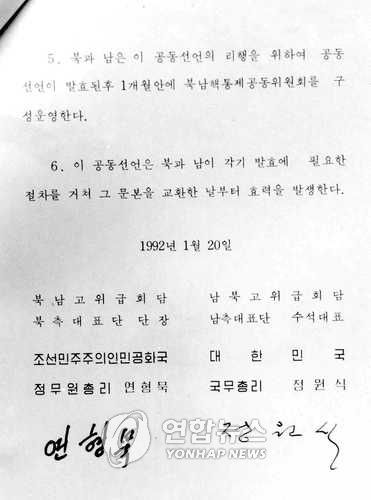 5. 북과 남은 이 공동선언의 리행을 위하여 공동
선언이 발효된후 1개월안에 북남핵통제공동위원회를 구
성운영한다.
6. 이 공동선언은 북과 남이 각기 발효에 필요한
절차를 거쳐 그 문본을 교환한 날부터 효력을 발생한다.
1992년 1월 20일
북남고위급회담 남북고위급회담
북측대표단 단장 남측대표단 수석대표
조선민주주의인민공화국 대한민국
정무원총리 연형묵 국무총리 정원식
연형묵 정원식
연합뉴스
YONHAP NEWS